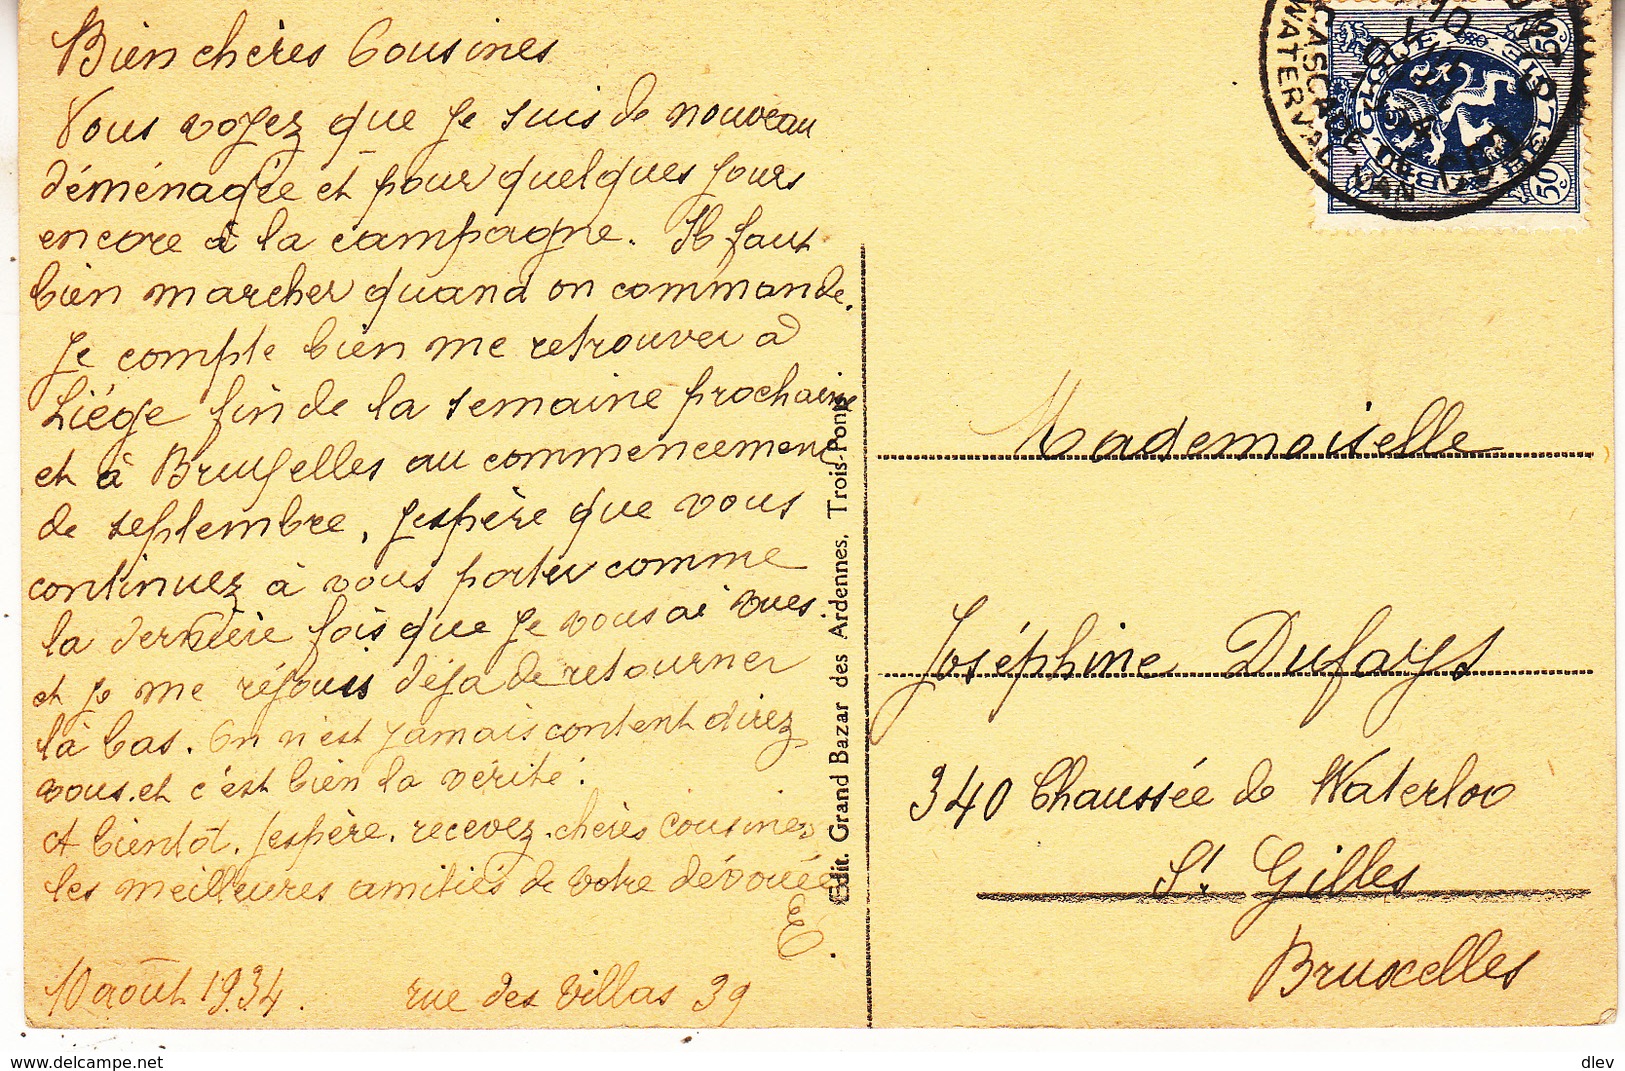 Bien chères Cousines
Vous voyez que je suis de nouveau
déménagée et pour quelques jours
encore à la campagne. Il faut
bien marcher quand on commande.
Je compte bien me retrouver à
Liége fin de la semaine prochaine
et à Bruxelles au commencement
de septembre, j'espère que vous
continuez à vous porter comme
la dernière fois que je vous ai vues.
et je me réjouis déja de retourner
là bas. On n'est jamais content direz
vous. et c'est bien la vérité.
A bientôt. j'espère. recevez. chères Cousines
les meilleures amitiés de votre dévouée
E.
10 août 1934. rue des Villas 39
Edit. Grand Bazar des Ardennes, Trois-Ponts
CASCADE DE
WATERVAL VAN COO
BELGIQUE BELGIE
50c 50c
Mademoiselle
Joséphine Dufays
340 Chaussée de Waterloo
St. Gilles
Bruxelles
www.delcampe.net
dlev